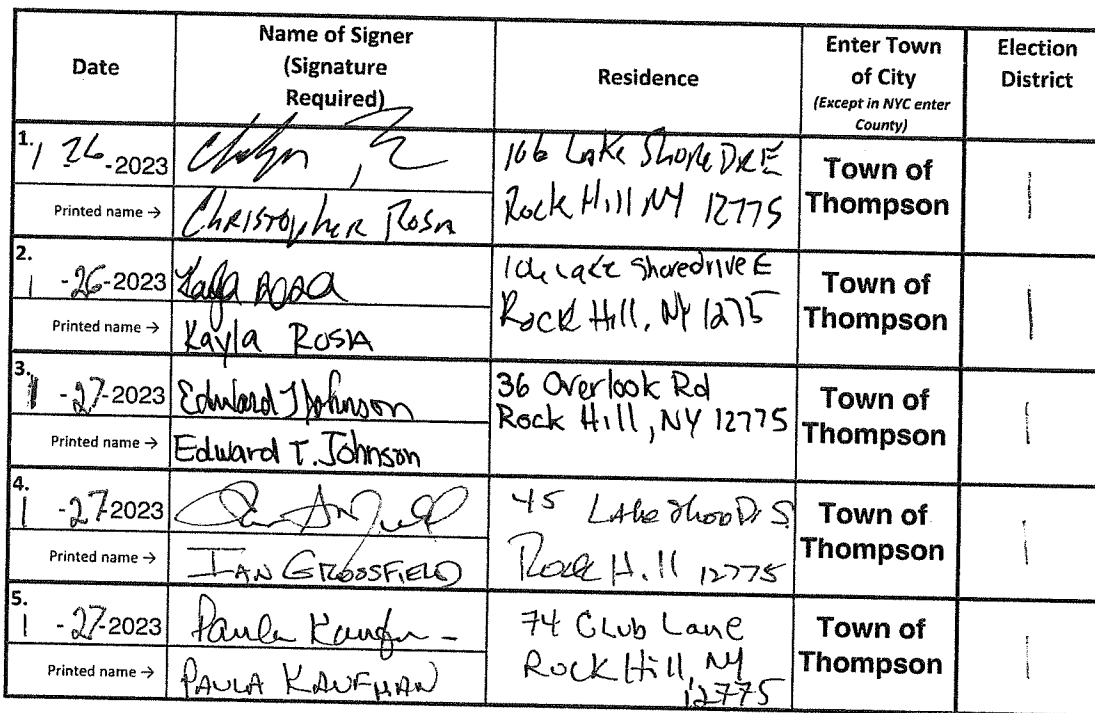 Date
Name of Signer
(Signature
Required)
Residence
Enter Town
of City
(Except in NYC enter
County)
Election
District
1.
1 26-2023
166 Lake Shore Dr E
Rock Hill NY 12775
Town of
Thompson
1
Printed name →
Christopher Rosa
2.
1 -26-2023
Kayla Rosa
Lake Shoredrive E
Rock Hill, NY 1275
Town of
Thompson
1
Printed name →
Kayla ROSA
3.
1 -27-2023
Edward T Johnson
36 Overlook Rd
Rock Hill, NY 12775
Town of
Thompson
1
Printed name →
Edward T. Johnson
4.
1 -27-2023
45 Lake Shore Dr S
Rock Hill 12775
Town of
Thompson
1
Printed name →
IAN GROSSFIELD
5.
1 -27-2023
Paula Kaufman
74 Club Lane
Rock Hill, NY
12775
Town of
Thompson
1
Printed name →
PAULA KAUFMAN